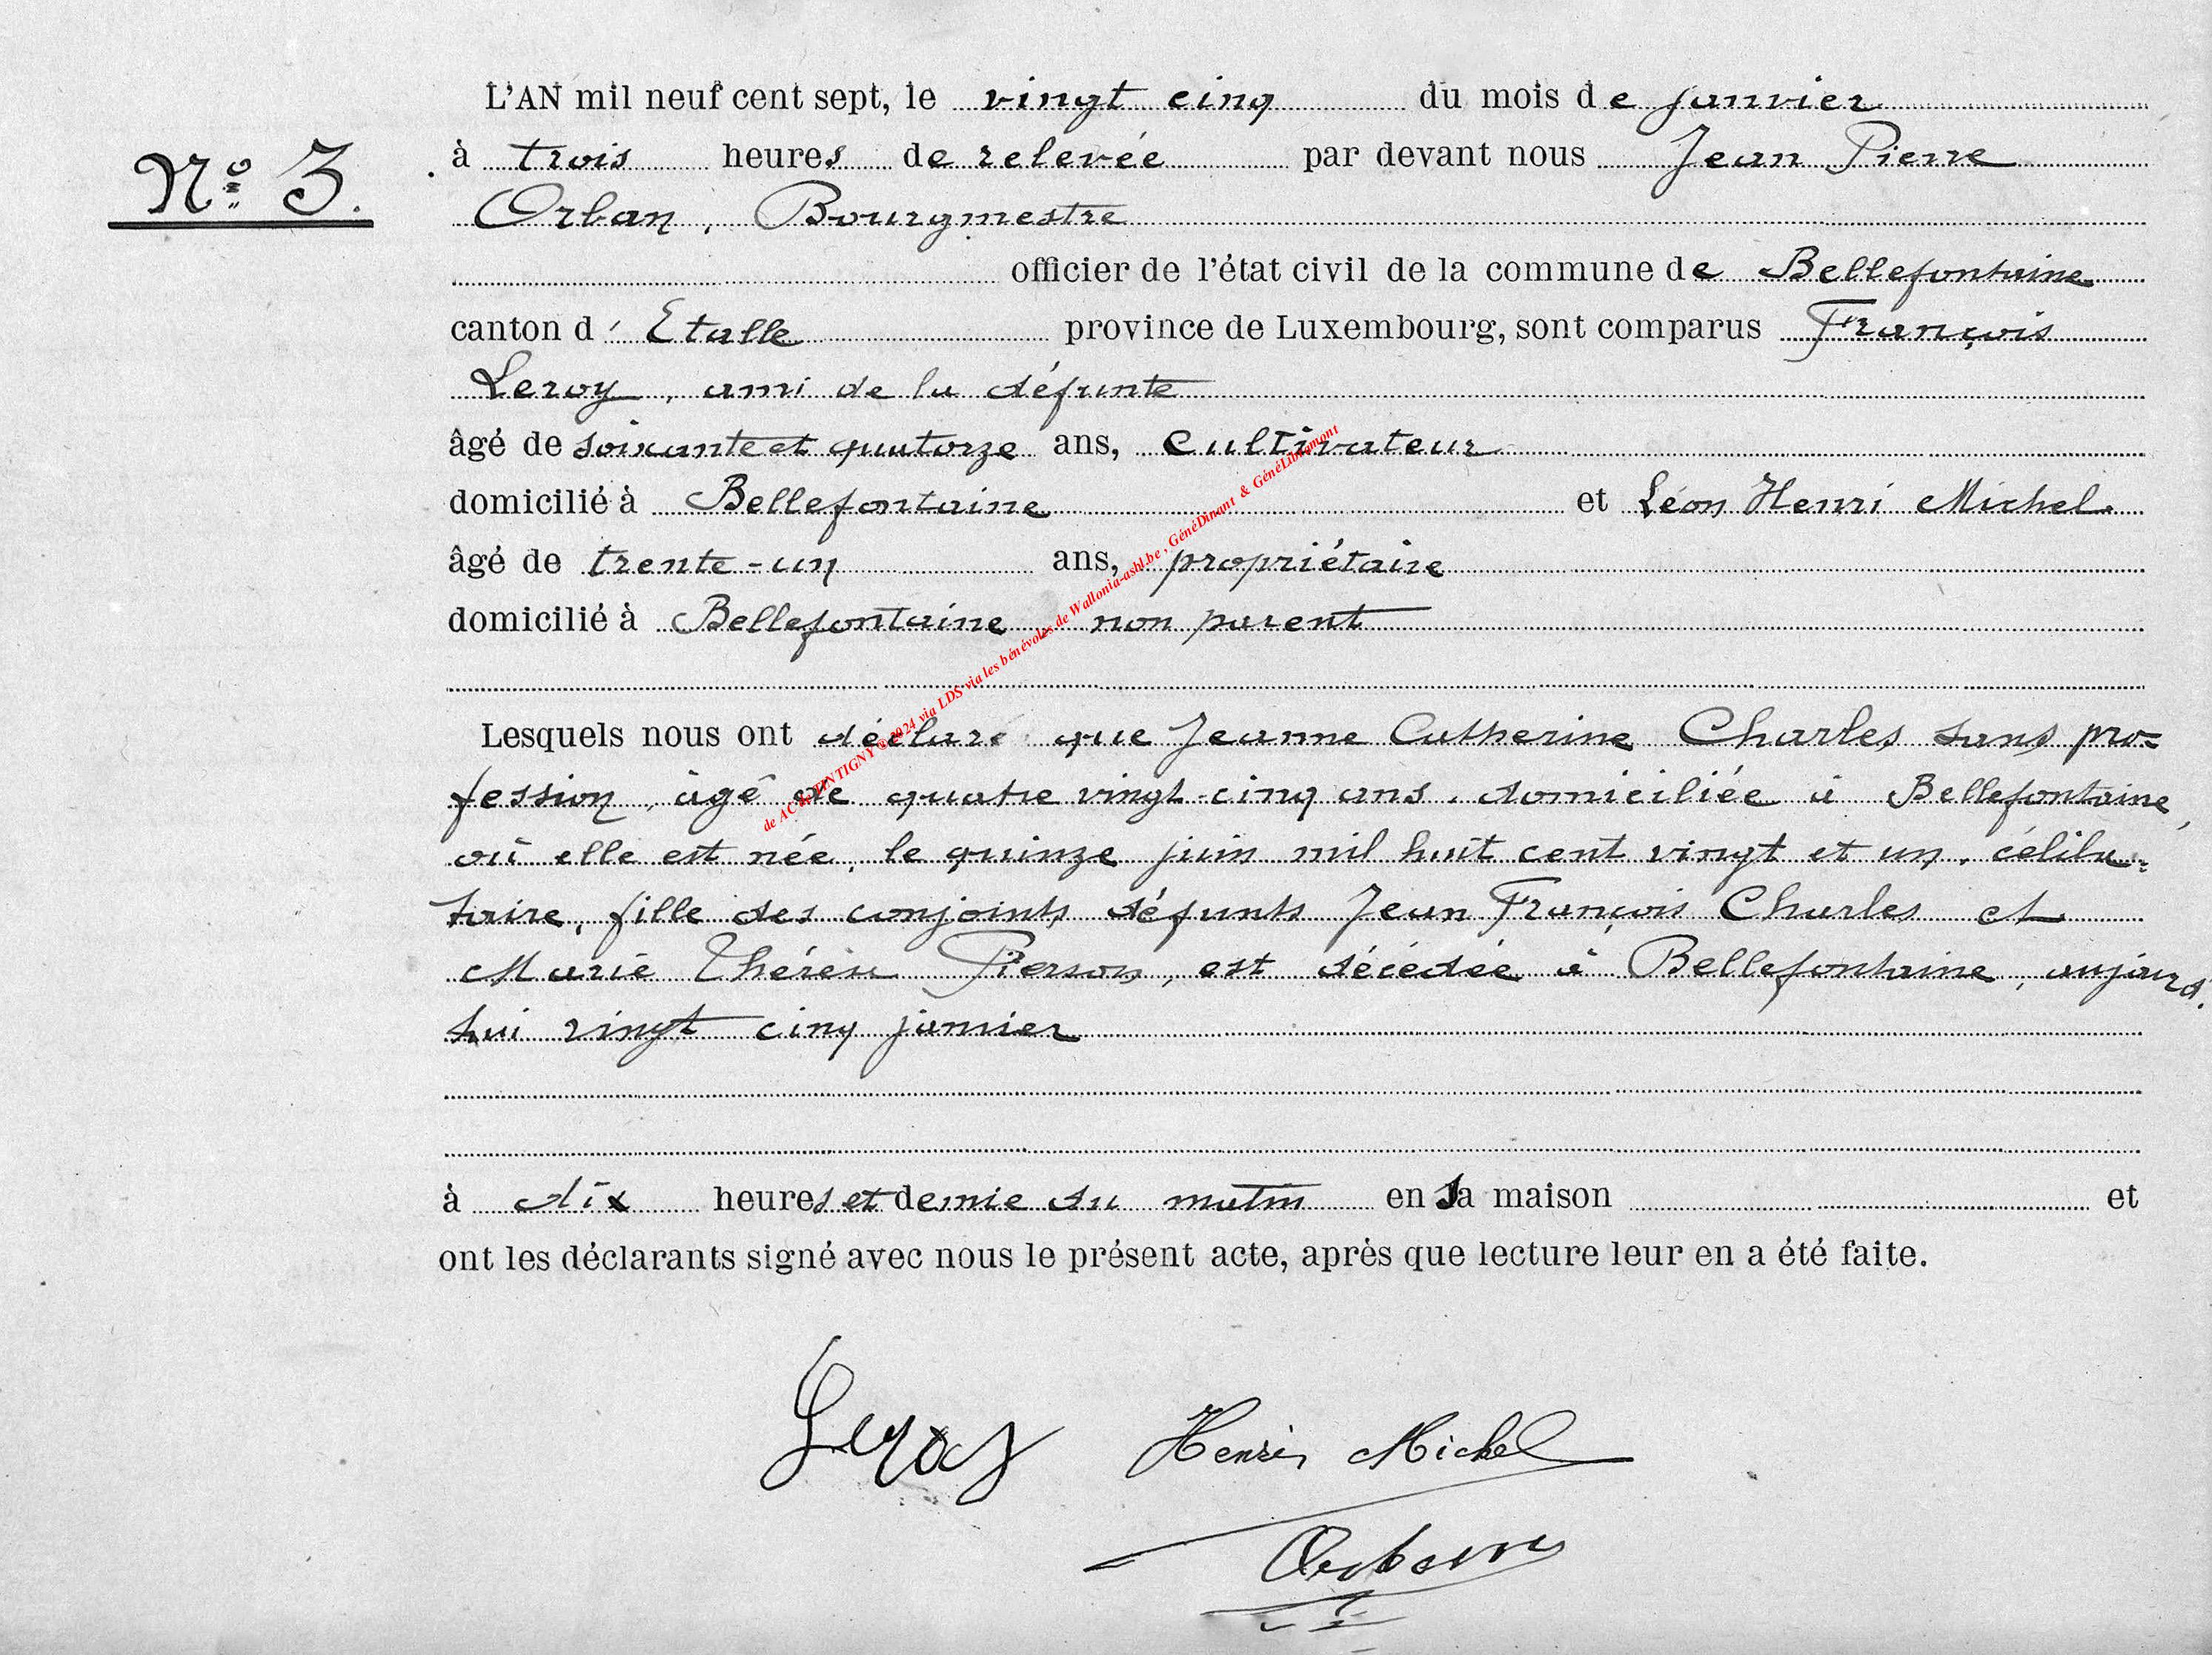 L'AN mil neuf cent sept, le vingt cinq du mois de janvier
N° 3.
à trois heures de relevée par devant nous Jean Pierre
Orban, Bourgmestre
officier de l'état civil de la commune de Bellefontaine
canton d'Etalle province de Luxembourg, sont comparus François
Leroy, ami de la défunte
âgé de soixante et quatorze ans, cultivateur
domicilié à Bellefontaine et Léon Henri Michel
âgé de trente-un ans, propriétaire
domicilié à Bellefontaine non parent
Lesquels nous ont déclaré que Jeanne Catherine Charles sans pro=
fession, âgé de quatre vingt-cinq ans, domiciliée à Bellefontaine,
où elle est née, le quinze juin mil huit cent vingt et un, céliba=
taire, fille des conjoints défunts Jean François Charles et
Marie Thérèse Pierson, est décédée à Bellefontaine, aujourd'
hui vingt cinq janvier
à dix heures et demie du matin en sa maison et
ont les déclarants signé avec nous le présent acte, après que lecture leur en a été faite.
Leroy Henri Michel
Orban
de AC de TINTIGNY © 2024 via LDS via les bénévoles de Wallonia-asbl.be, GénéDinant & GénéLibramont